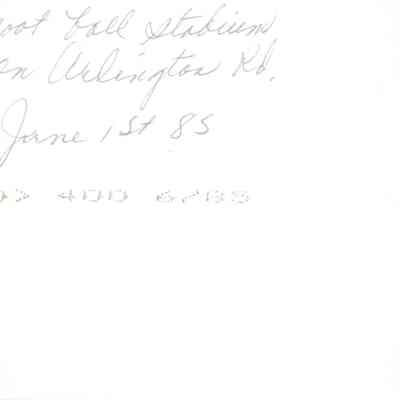 oot ball Stadium
on Arlington Rd.
June 1st 85
400 6/85